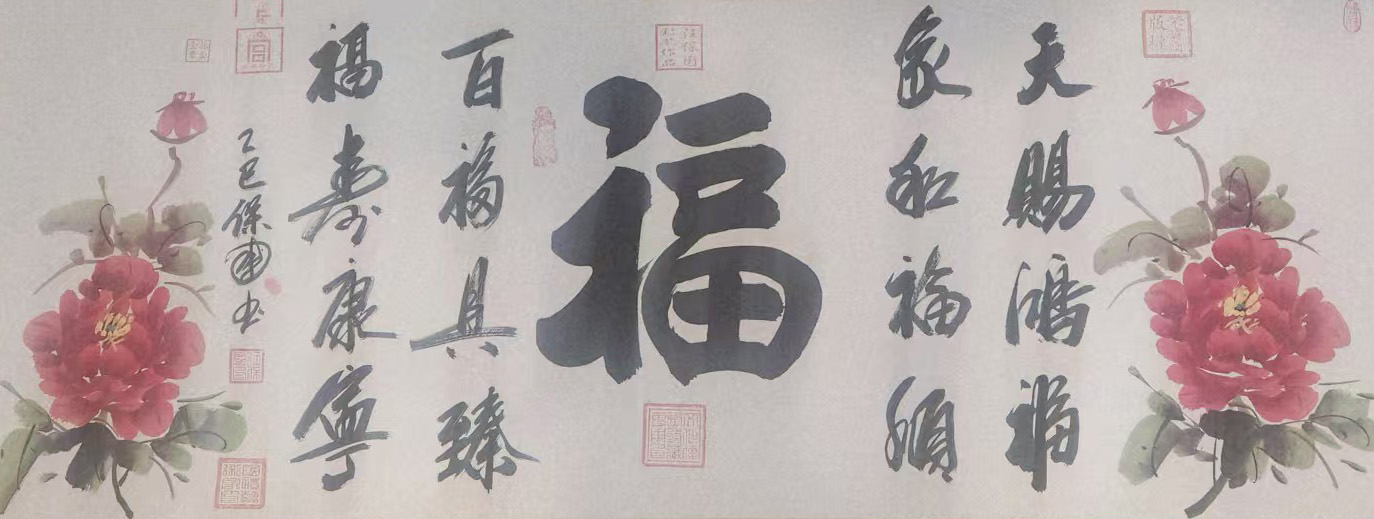 天賜鴻福
家和福順
福
百福具臻
福壽康寧
乙巳保國书